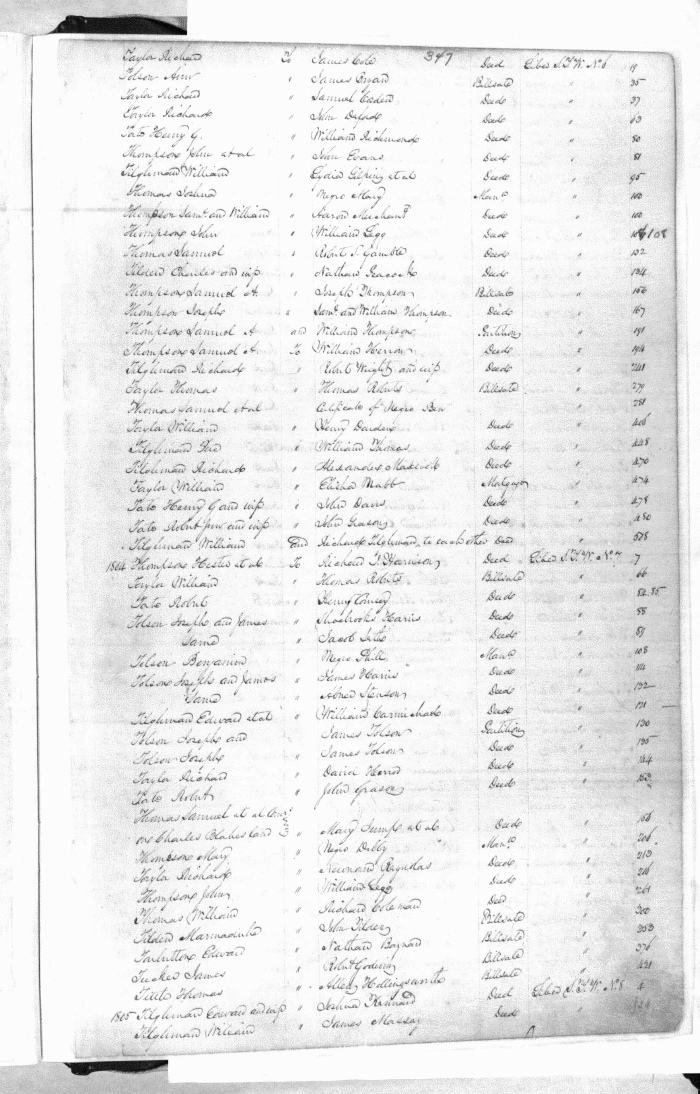 347
Taylor Richard To James Cole Deed Liber S.T.W. No 6 19
Tolson Ann " James Bryan Billsale " 35
Taylor Richard " Samuel Caden Deed " 37
Taylor Richard " John Oxford Deed " 63
Tate Henry G. " William Richmond Deed " 80
Thompson John et al " John Evans Deed " 81
Tilghman William " Lydia Gilpin et al Deed " 95
Thomas Joshua " Negro Mary Manu 100
Thompson Saml. and William " Aaron Merchant Deed " 100
Thompson John " William Lego Deed " 108
Thomas Samuel " Robert S. Gamble Deed " 132
Tilden Charles and wife " Nathan Peacock Deed " 134
Thompson Samuel A. " Joseph Thompson Billsale " 156
Thompson Joseph " Saml. and William Thompson Deed " 167
Thompson Samuel A and William Thompson Partition " 191
Thompson Samuel A. To William Herron Deed " 194
Tilghman Richard " Robert Wright and wife Deed " 241
Taylor Thomas " Thomas Roberts Billsale " 279
Thomas Samuel et al Certificate of Negro Ben " 281
Taylor William " Henry Darden Deed " 406
Tilghman " William Thomas Deed " 448
Tilghman Richard " Alexander Maxwell Deed " 470
Taylor William " Elisha Mabb Mortgage " 474
Tate Henry G and wife " John Davis Deed " 478
Tate Robert Junr and wife " John Grason Deed " 480
Tilghman William And Richard Tilghman, to each other Deed 578
1804 Thompson Hester et al To Richard T. Harrison Deed Liber S.T.W. No 7 7
Taylor William " Thomas Roberts Billsale " 66
Tate Robert " Henry Comegy Deed " 84.85
Tolson Joseph and James " Shoebrooks Harris Deed " 88
Same " Jacob Deed " 89
Tolson Benjamin " Negro Phill Manu " 108
Tolson Joseph and James " James Harris Deed " 111
Same " Abner Stenson Deed " 132
Tilghman Edward et al " William Carmichael Deed " 131
Tolson Joseph and James Tolson Partition " 130
Tolson Joseph " James Tolson Deed " 135
Taylor Richard " David Herrd Deed " 144
Tate Robert " John Grason Deed " 163
Thomas Samuel et al
ors Charles Blakes land " Mary Sump et al Deed " 166
Thompson Mary " Negro Debby Manu " 206
Taylor Richard " Deed " 213
Thompson John " William Lego Deed " 216
Thomas William " Richard Coleman Deed " 261
Tilden Marmaduke " John Tilden Billsale " 300
Tarbutton Edward " Nathan Baynard Billsale " 353
Tucker James " Robert Godwin Billsale " 376
Tittle Thomas " Allen Hollingsworth Billsale " 431
1805 Tilghman Edward and wife " Joshua Kennard Deed Liber S.T.W. No 8 4
Tilghman William " James Massey Deed "